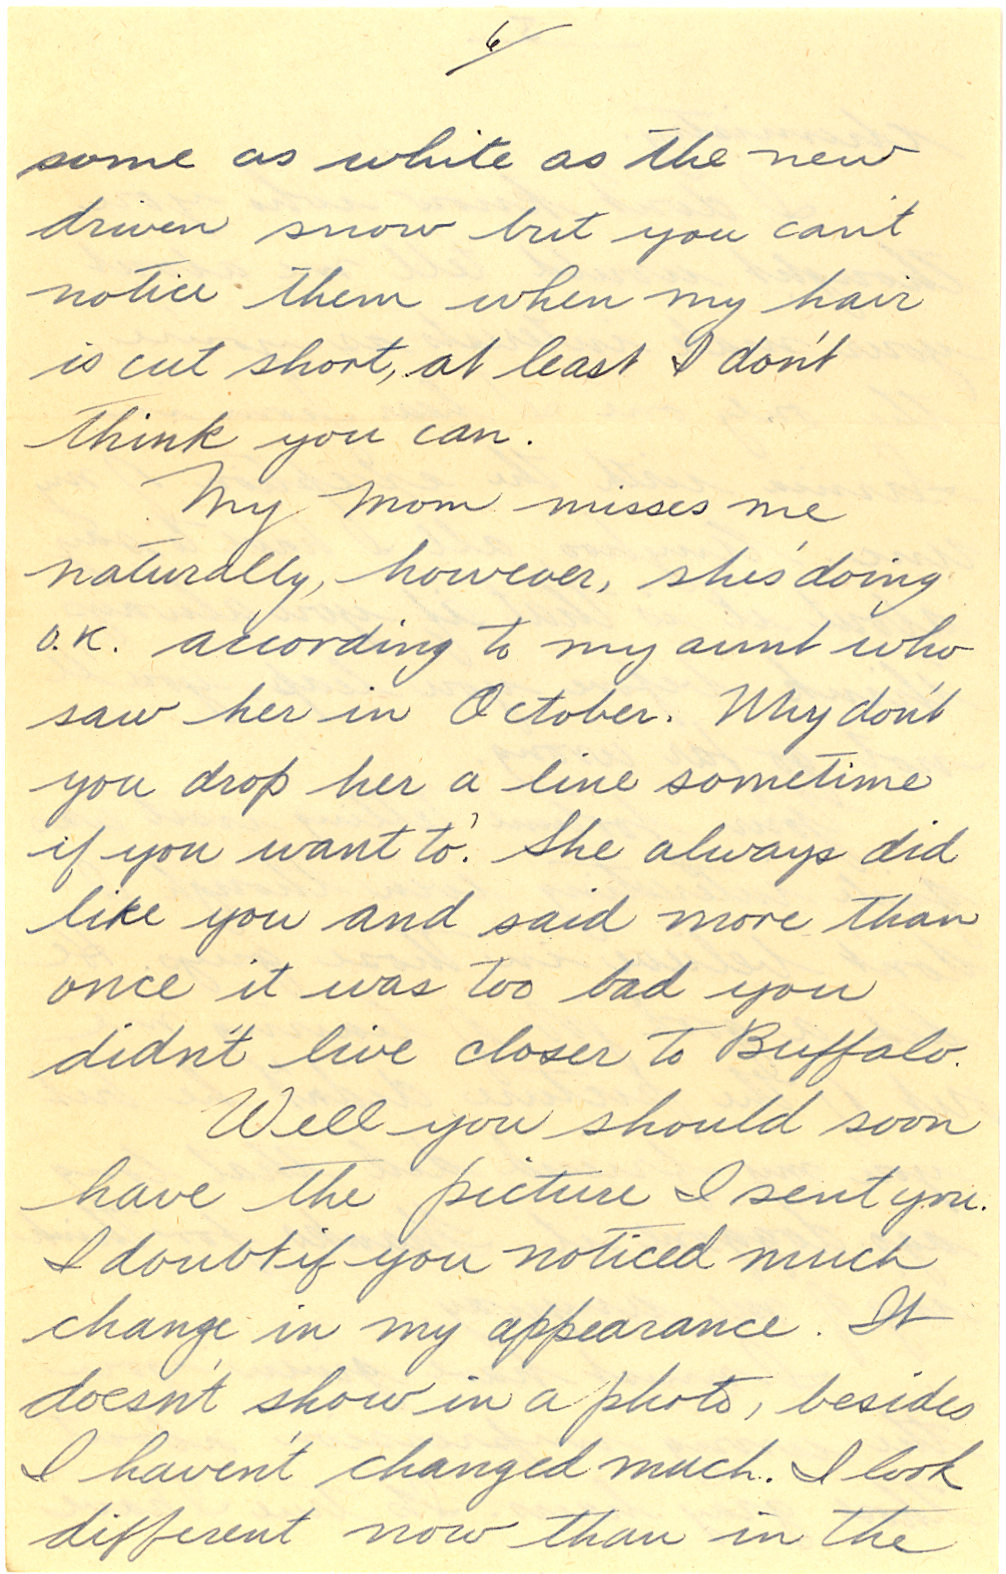 6/
some as white as the new
driven snow but you can't
notice them when my hair
is cut short, at least I don't
think you can.
My Mom misses me
naturally, however, she's doing
O.K. according to my aunt who
saw her in October. Why don't
you drop her a line sometime
if you want to. She always did
like you and said more than
once it was too bad you
didn't live closer to Buffalo.
Well you should soon
have the picture I sent you.
I doubt if you noticed much
change in my appearance. It
doesn't show in a photo, besides
I haven't changed much. I look
different now than in the